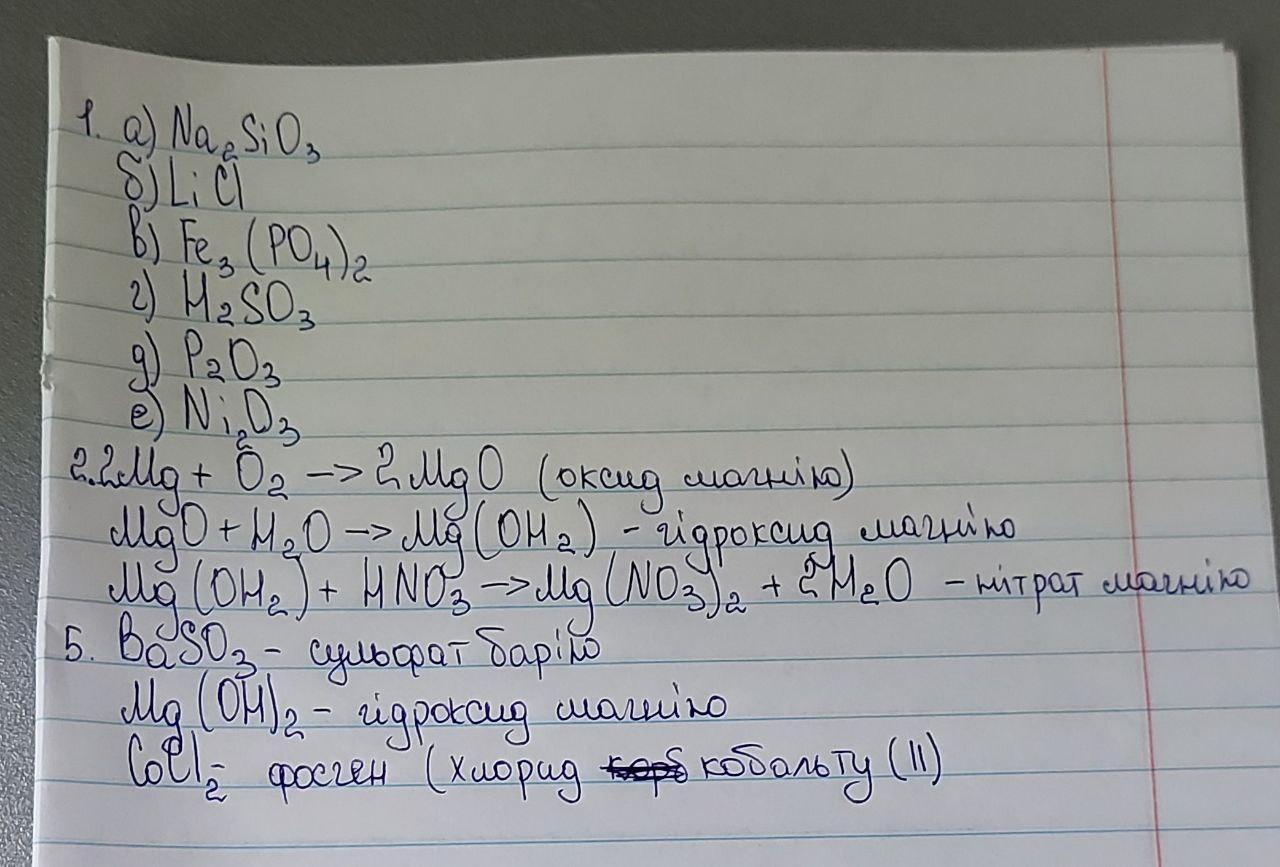 1. а) Na₂SiO₃
б) LiCl
в) Fe₃(PO₄)₂
г) H₂SO₃
д) P₂O₃
е) Ni₂O₃
2. 2Mg + O₂ —> 2MgO (оксид магнію)
MgO + H₂O —> Mg(OH₂) - гідроксид магнію
Mg(OH₂) + HNO₃ —> Mg(NO₃)₂ + 2H₂O - нітрат магнію
5. BaSO₃ - сульфат барію
Mg(OH)₂ - гідроксид магнію
CoCl₂ - фосген (хлорид кобальту (II)